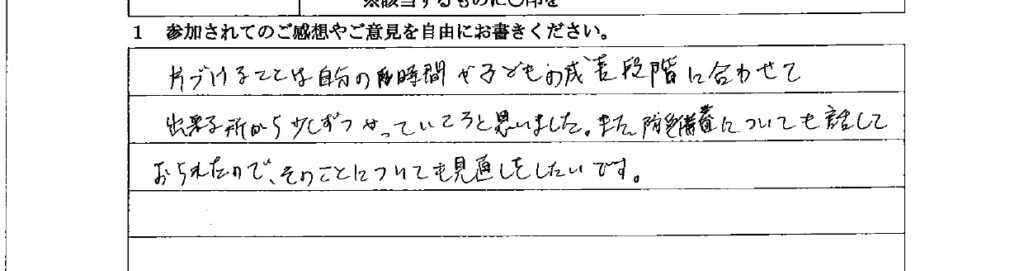 ※該当するものに○印を
1 参加されてのご感想やご意見を自由にお書きください。
片づけることは自分の時間や子どもの成長段階に合わせて
出来る所から少しずつやっていこうと思いました。また、防災備蓄についても話して
おられたので、そのことについても見直しをしたいです。